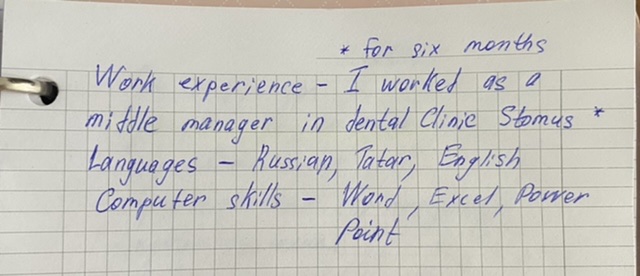 * for six months
Work experience – I worked as a
middle manager in dental Clinic Stomus *
Languages – Russian, Tatar, English
Computer skills – Word, Excel, Power
Point